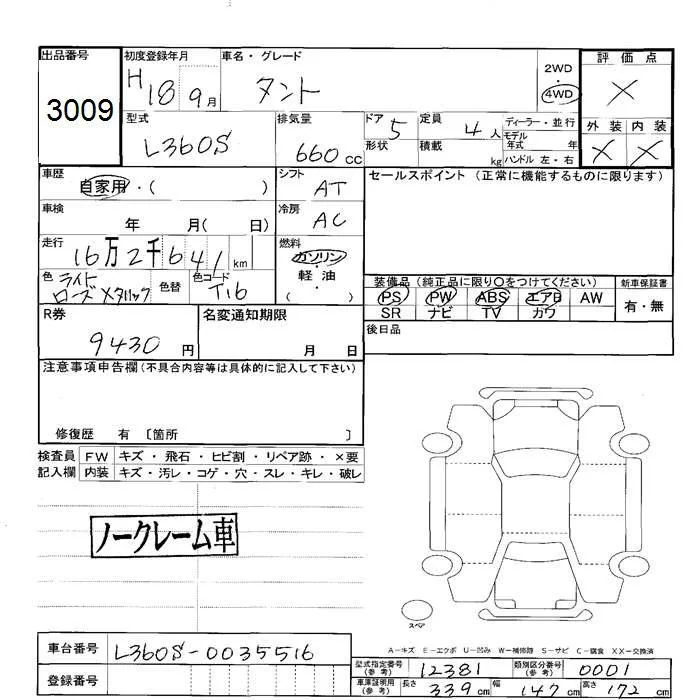 出品番号 初度登録年月 車名・グレード 2WD 評価点
3009 H18 9月 タント 4WD ×
型式 排気量 ドア 5 定員 4人 ディーラー・並行 外装 内装
L360S 660cc 形状 積載 kg モデル年式 年 × ×
ハンドル 左・右
車歴 自家用・( ) シフト AT セールスポイント (正常に機能するものに限ります)
車検 年 月( 日) 冷房 AC
走行 16万2千641km 燃料 ガソリン・軽油 ( )
色 ライトローズメタリック 色替 色コード T16
装備品 (純正品に限り○をつけてください) 新車保証書
PS PW ABS エアB AW 有・無
SR ナビ TV カワ
R券 名変通知期限 後日品
9430円 月 日
注意事項申告欄(不具合内容等は具体的に記入して下さい)
修復歴 有 〔箇所 〕
検査員 FW キズ・飛石・ヒビ割・リペア跡・×要
記入欄 内装 キズ・汚レ・コゲ・穴・スレ・キレ・破レ
ノークレーム車
スペア
A−キズ E−エクボ U−凹み W−補修跡 S−サビ C−腐食 XX−交換済
車台番号 L360S-0035516 型式指定番号(参考) 12381 類別区分番号(参考) 0001
登録番号 車庫証明用(参考) 長さ 339cm 幅 147cm 高さ 172cm